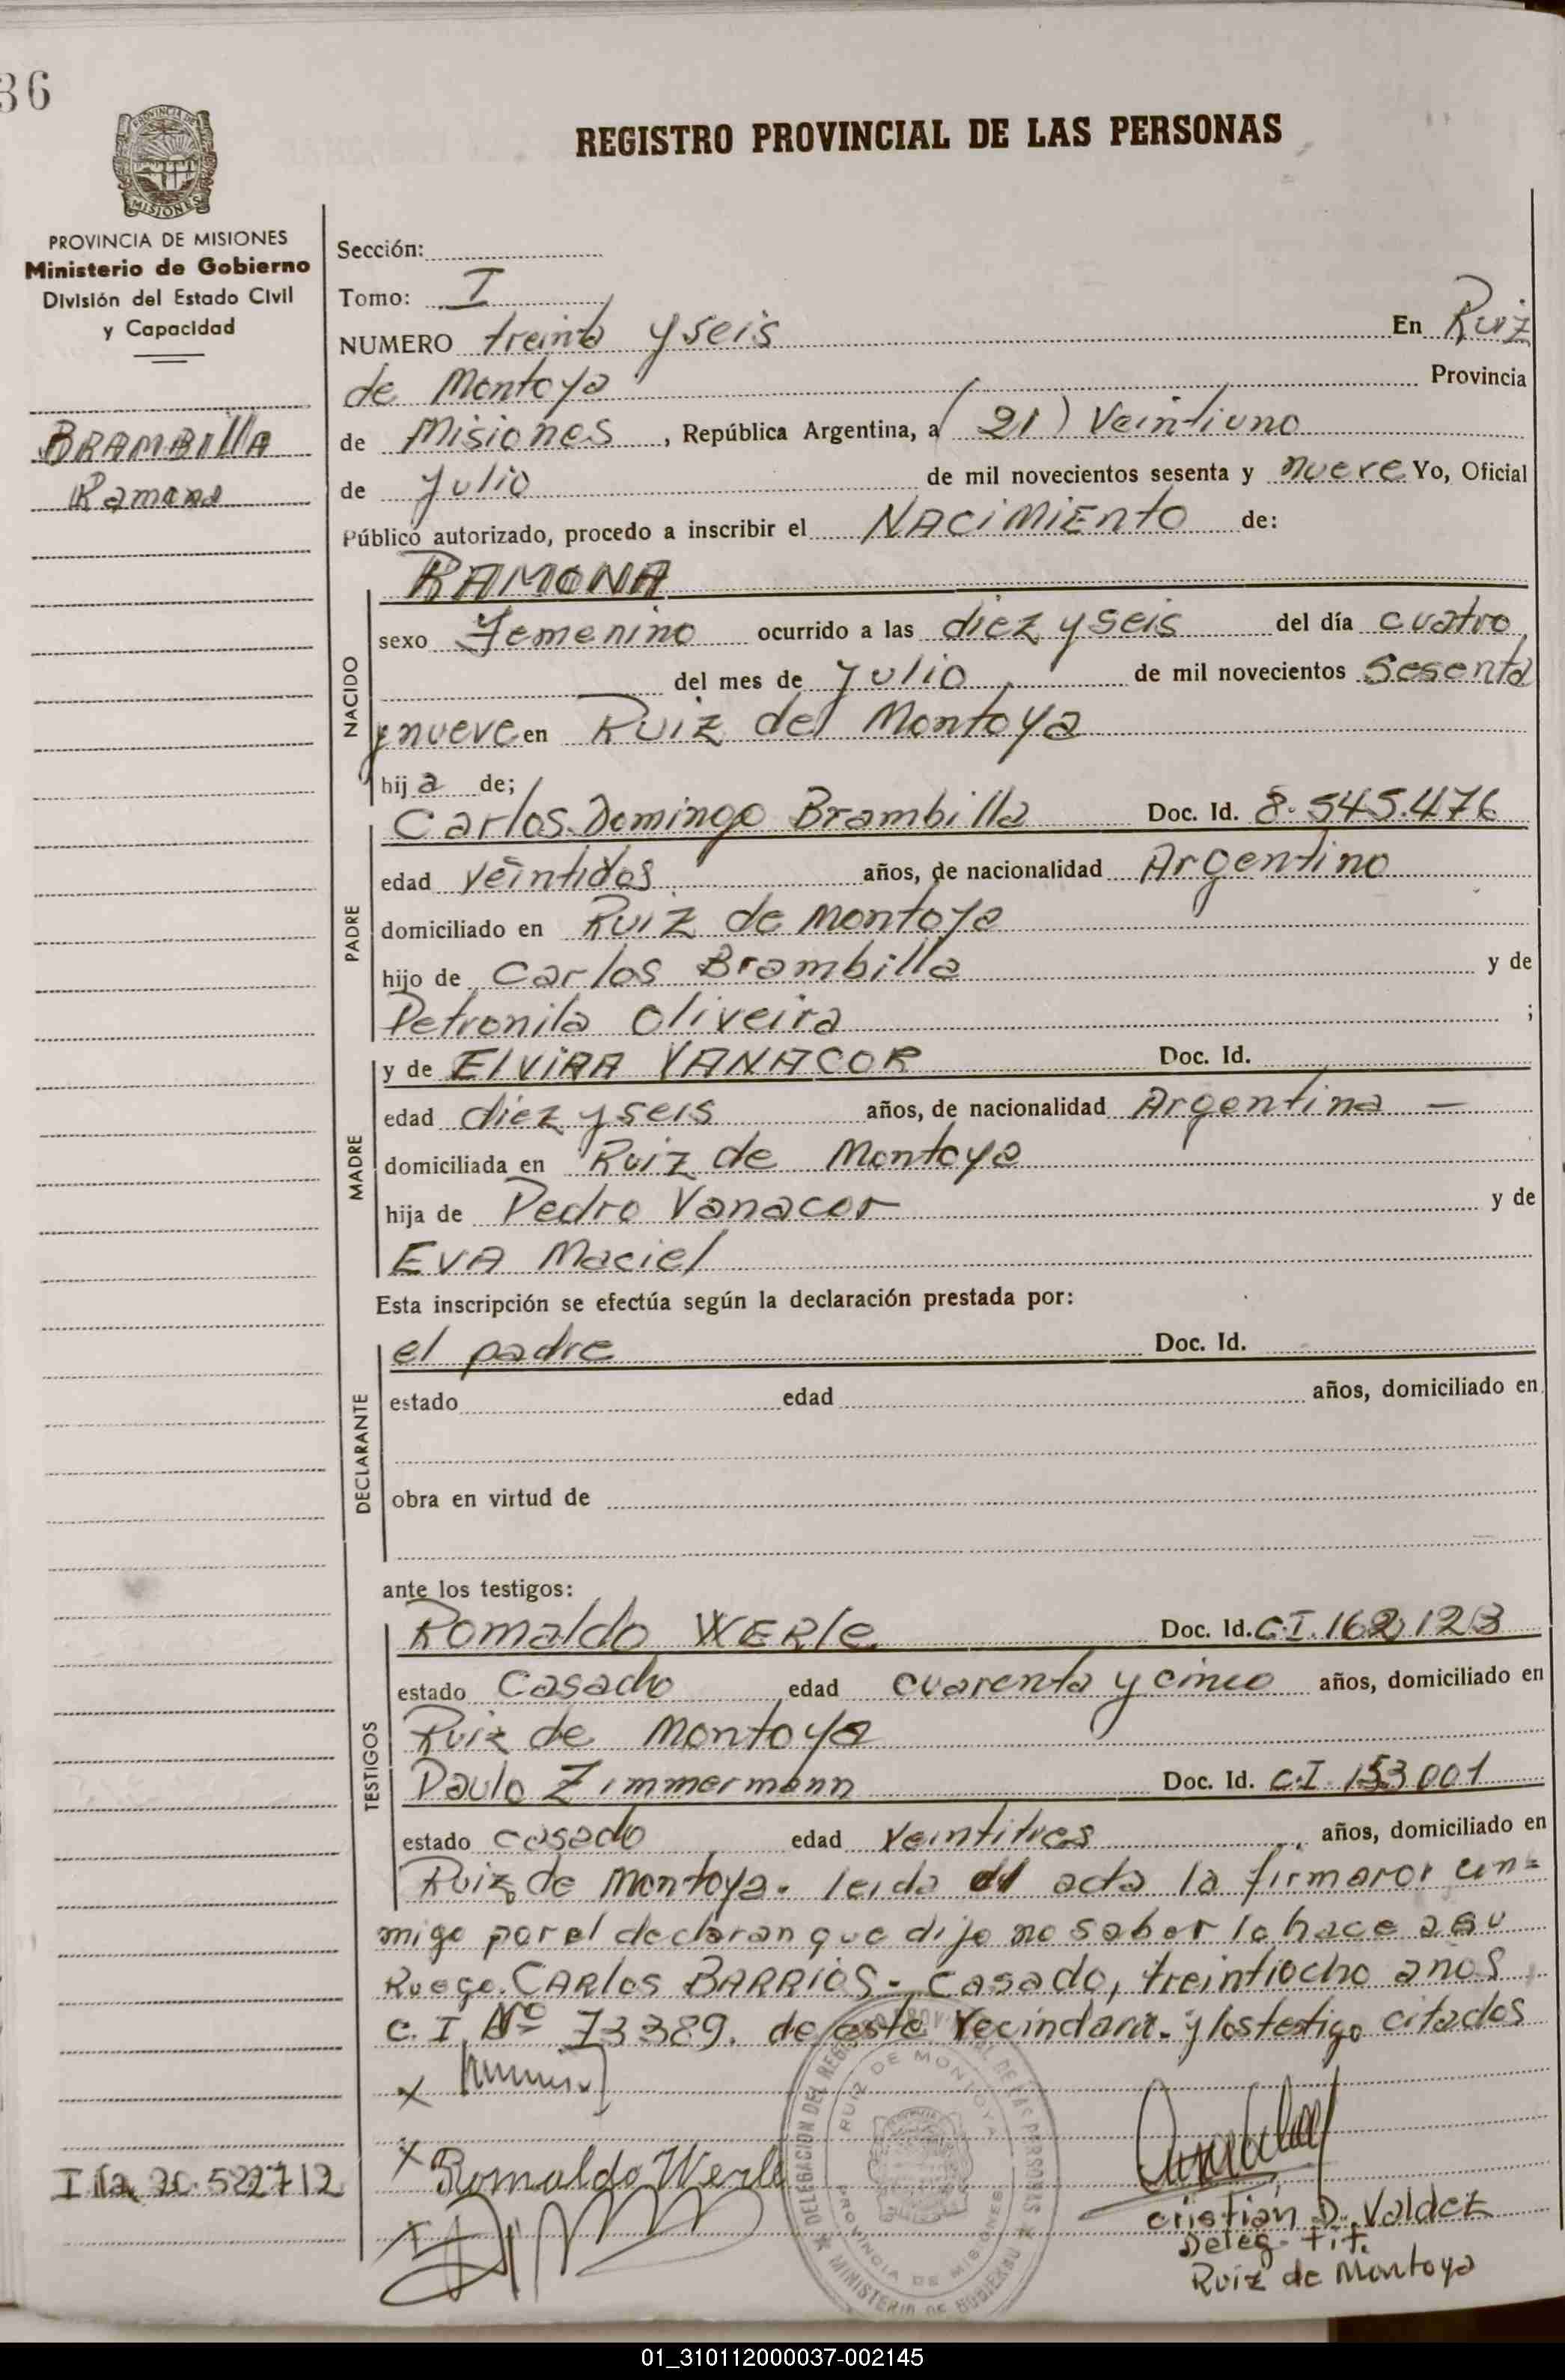 36
REGISTRO PROVINCIAL DE LAS PERSONAS
PROVINCIA DE MISIONES
MISIONES
PROVINCIA DE MISIONES
Ministerio de Gobierno
División del Estado Civil
y Capacidad
BRAMBILLA
Ramona
Sección:
Tomo: I
NUMERO treinta y seis En Ruiz
de Montoya Provincia
de Misiones, República Argentina, a (21) Veintiuno
de Julio de mil novecientos sesenta y nueve Yo, Oficial
Público autorizado, procedo a inscribir el NACIMIENTO de:
RAMONA
NACIDO
sexo Femenino ocurrido a las diez y seis del día cuatro
del mes de Julio de mil novecientos Sesenta
y nueve en Ruiz de Montoya
hija de;
PADRE
Carlos Domingo Brambilla Doc. Id. 8.545.476
edad veintidos años, de nacionalidad Argentino
domiciliado en Ruiz de Montoya
hijo de Carlos Brambilla y de
Petronila Oliveira ;
MADRE
y de ElVIRA VANACOR Doc. Id.
edad diez y seis años, de nacionalidad Argentina —
domiciliada en Ruiz de Montoya
hija de Pedro Vanacor y de
EVA Maciel
Esta inscripción se efectúa según la declaración prestada por:
DECLARANTE
el padre Doc. Id.
estado edad años, domiciliado en
obra en virtud de
ante los testigos:
TESTIGOS
Romaldo WERle Doc. Id. C.I. 162123
estado Casado edad cuarenta y cinco años, domiciliado en
Ruiz de Montoya
Paulo Zimmermann Doc. Id. C.I. 153001
estado casado edad veintitres años, domiciliado en
Ruiz de Montoya. leida el acta la firmaron con=
migo por el declaran que dijo no saber lo hace a su
Ruego. CARlos BARRIOS - Casado, treintiocho años
C. I. Nº 73389. de este Vecindario. y los testigo citados
X
X Romaldo Werle
X
DELEGACION DEL REGISTRO PROVINCIAL DE LAS PERSONAS
MINISTERIO DE GOBIERNO
RUIZ DE MONTOYA
PROVINCIA DE MISIONES
Cristian D. Valdez
Deleg. Tit.
Ruiz de Montoya
20.522712
01_310112000037-002145